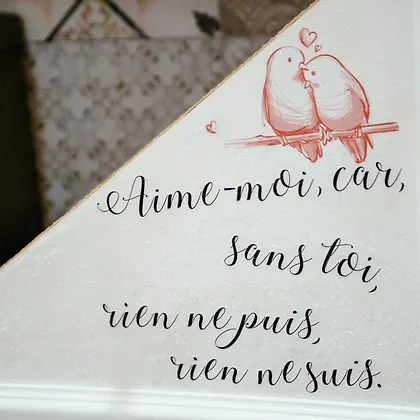 Aime-moi, car,
sans toi,
rien ne puis,
rien ne suis.